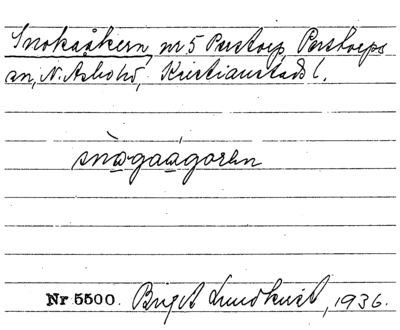 Snokaåkern, nr 5 Perstorp Perstorps
sn, N. Åsbohd, Kristianstads l.
snògaágorən
Nr 5500. Birgit Lundkvist, 1936.